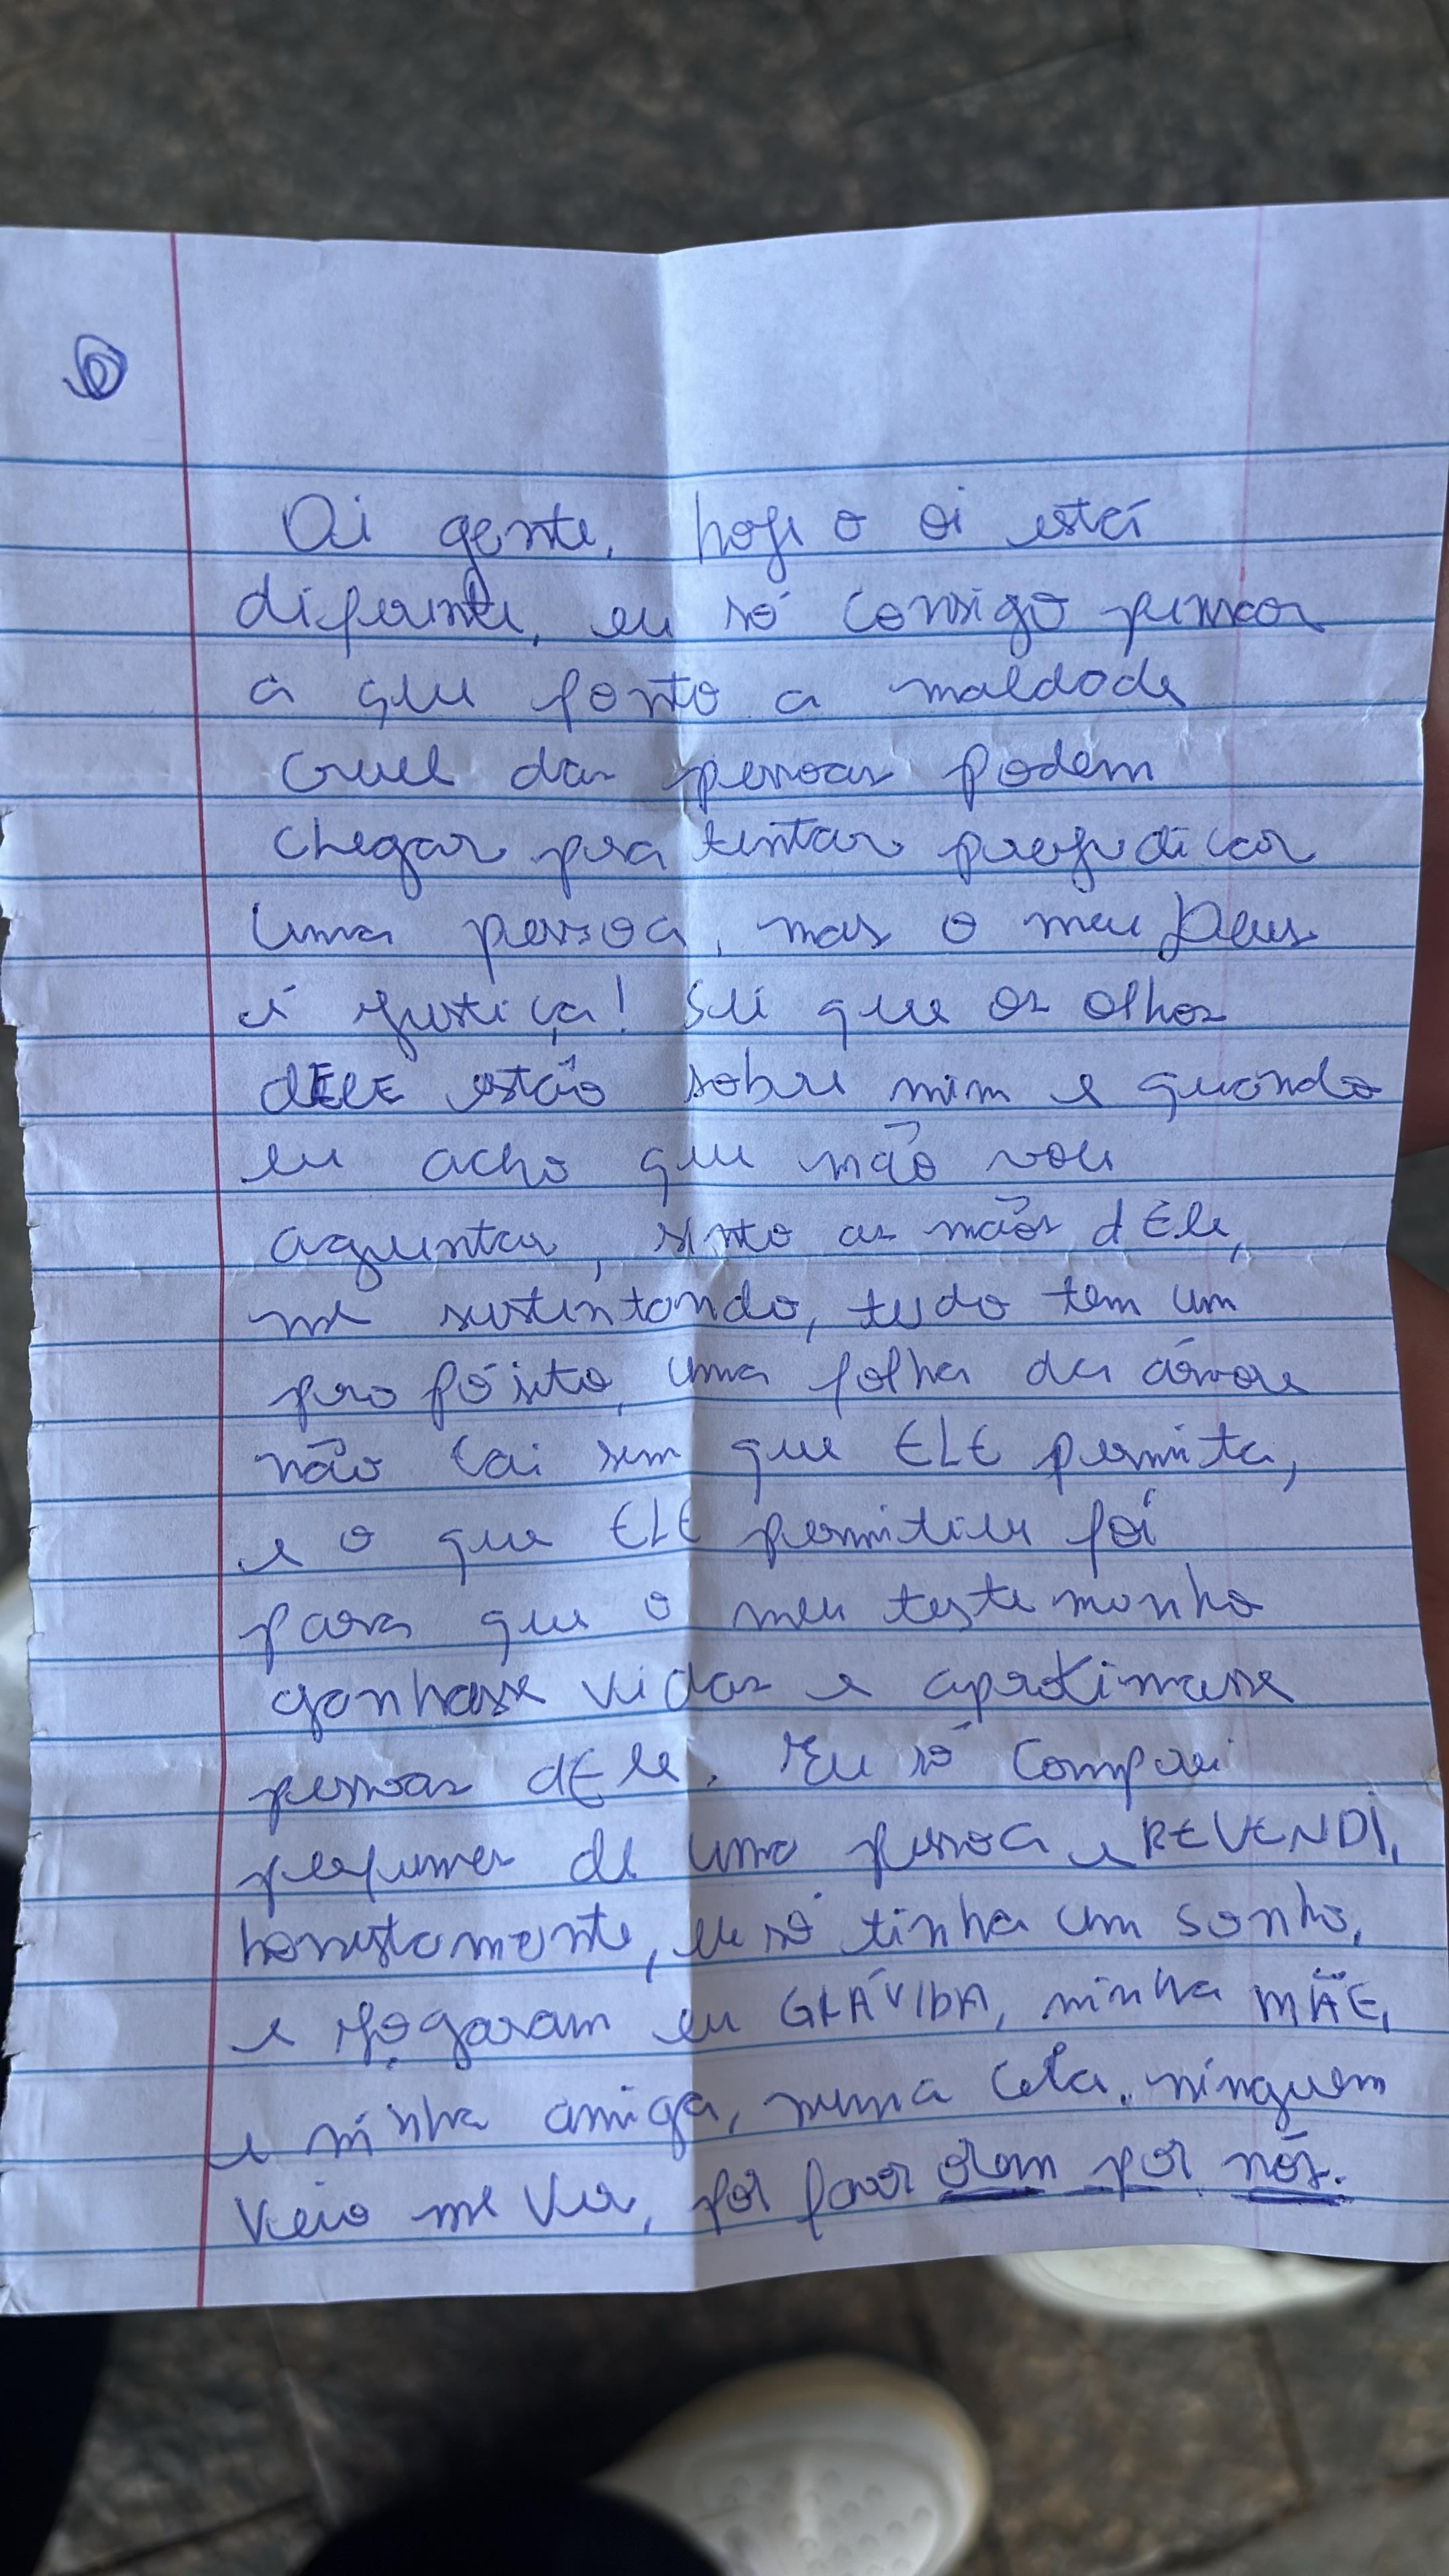 Oi gente, hoje o oi está
diferente, eu só consigo pensar
a que ponto a maldade
cruel das pessoas podem
chegar pra tentar prejudicar
uma pessoa, mas o meu Deus
é justiça! Sei que os olhos
dELE estão sobre mim e quando
eu acho que não vou
aguentar, sinto as mãos dEle,
me sustentando, tudo tem um
propósito, uma folha da árvore
não cai sem que ELE permita,
e o que ELE permitiu foi
para que o meu testemunho
ganhasse vidas e aproximasse
pessoas dEle. Eu só comprei
perfumes de uma pessoa e REVENDI,
honestamente, eu só tinha um sonho,
e jogaram eu GRÁVIDA, minha MÃE,
e minha amiga, numa cela. ninguém
veio me ver, por favor orem por nós.